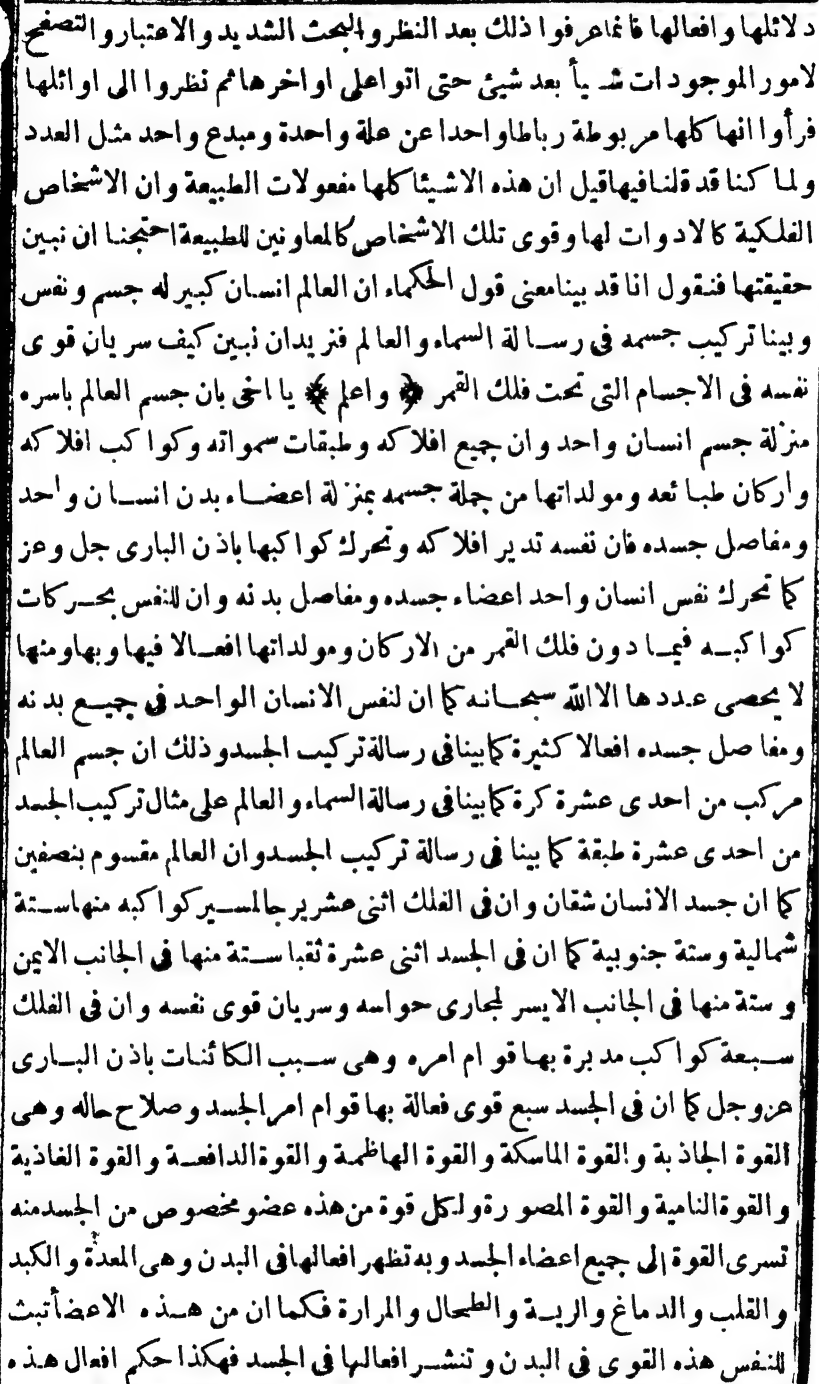 دلائلها وافعالها فانما عرفوا ذلك بعد النظر والبحث الشديد والاعتبار والتصفح
لامور الموجودات شيأ بعد شيئ حتى اتوا على اواخرها ثم نظروا الى اوائلها
فرأوا انها كلها مربوطة رباطا واحدا عن علة واحدة ومبدع واحد مثل العدد
ولما كنا قد قلنا فيها قيل ان هذه الاشيئا كلها مفعولات الطبيعة وان الاشخاص
الفلكية كالادوات لها وقوى تلك الاشخاص كالمعاونين للطبيعة احتجنا ان نبين
حقيقتها فنقول انا قد بينا معنى قول الحكماء ان العالم انسان كبير له جسم ونفس
وبينا تركيب جسمه فى رسالة السماء والعالم فنريد ان نبين كيف سريان قوى
نفسه فى الاجسام التى تحت فلك القمر ﴿ واعلم ﴾ يا اخى بان جسم العالم باسره
منزلة جسم انسان واحد وان جميع افلاكه وطبقات سمواته وكواكب افلاكه
واركان طبائعه ومولداتها من جملة جسمه بمنزلة اعضاء بدن انسان واحد
ومفاصل جسده فان نفسه تدير افلاكه وتحرك كواكبها باذن البارى جل وعز
كما تحرك نفس انسان واحد اعضاء جسده ومفاصل بدنه وان للنفس بحركات
كواكبه فيما دون فلك القمر من الاركان ومولداتها افعالا فيها وبها ومنها
لا يحصى عددها الا الله سبحانه كما ان لنفس الانسان الواحد فى جميع بدنه
ومفاصل جسده افعالا كثيرة كما بينا فى رسالة تركيب الجسد وذلك ان جسم العالم
مركب من احدى عشرة كرة كما بينا فى رسالة السماء والعالم على مثال تركيب الجسد
من احدى عشرة طبقة كما بينا فى رسالة تركيب الجسد وان العالم مقسوم بنصفين
كما ان جسد الانسان شقان وان فى الفلك اثنى عشر برجا لمسير كواكبه منها ستة
شمالية وستة جنوبية كما ان فى الجسد اثنى عشرة ثقبا ستة منها فى الجانب الايمن
وستة منها فى الجانب الايسر لمجارى حواسه وسريان قوى نفسه وان فى الفلك
سبعة كواكب مدبرة بها قوام امره وهى سبب الكائنات باذن البارى
عزوجل كما ان فى الجسد سبع قوى فعالة بها قوام امر الجسد وصلاح حاله وهى
القوة الجاذبة والقوة الماسكة والقوة الهاظمة والقوة الدافعة والقوة الغاذية
والقوة النامية والقوة المصورة ولكل قوة من هذه عضو مخصوص من الجسد منه
تسرى القوة الى جميع اعضاء الجسد وبه تظهر افعالها فى البدن وهى المعدة والكبد
والقلب والدماغ والرية والطحال والمرارة فكما ان من هذه الاعضأ تبث
للنفس هذه القوى فى البدن وتنشر افعالها فى الجسد فهكذا حكم افعال هذه